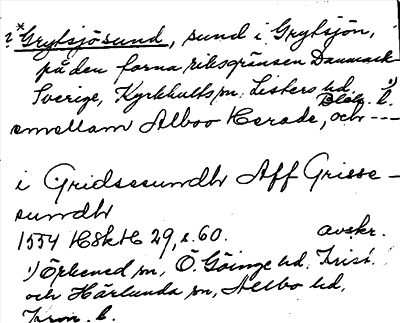 ? *Grytsjösund, sund i Grytsjön,
på den forna riksgränsen Danmark-
Sverige, Kyrkhults sn, Listers hd, 1)
Blek. l.
emellam Alboo Herade, och ---
i Gridsesundh Aff Grisse-
sundh
1554 HSH 29, s. 60. avskr.
1) Örkened sn, Ö. Göinge hd, Krist.
och Härlunda sn, Allbo hd,
Kron. l.